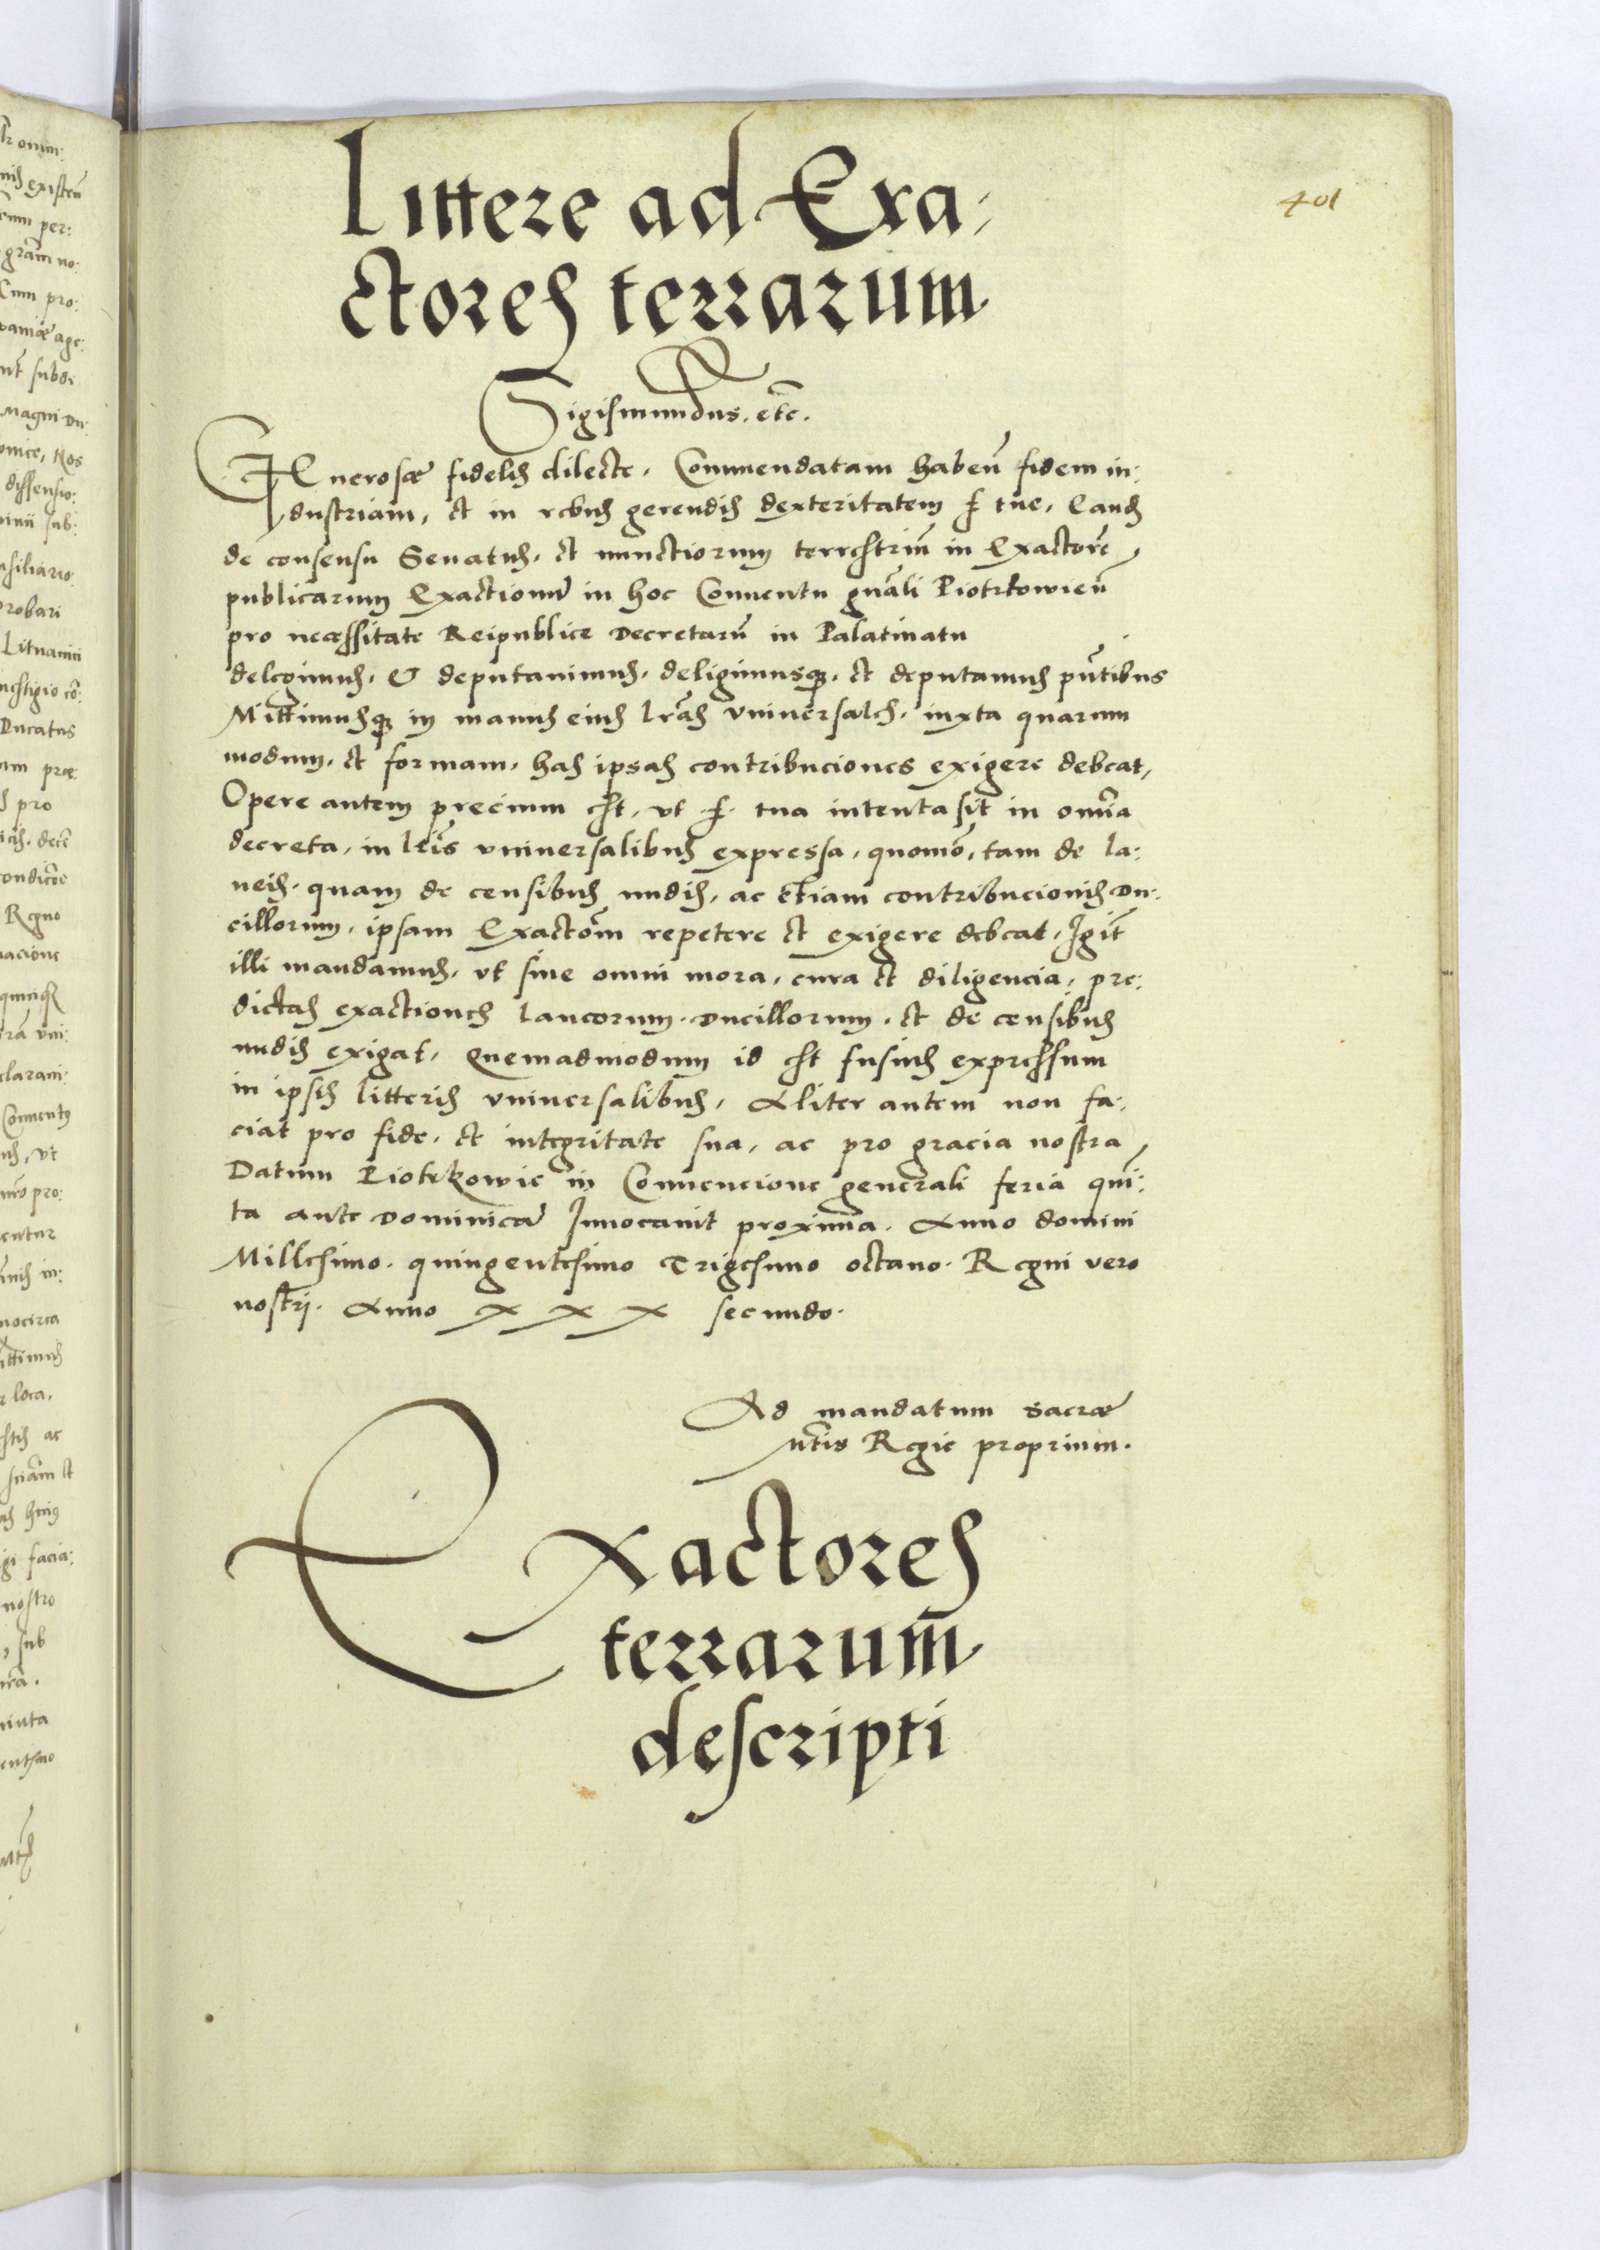 401
Littere ad Exa-
ctores terrarum
Sigismundus. etc̄.
Generosæ fidelis dilecte. Commendatam habeñ fidem in:
dustriam, et in rebus gerendis dexteritatem f tue, Eands
de consensu Senatus, et nunctiorum terrestriū in Exactorē
publicarum Exactionū in hoc Conuentu gnāli Piotrkowieñ
pro necessitate Reipublice Decretarū in Palatinatu
delegimus, & deputauimus, deligimusq, et deputamus pn̄tibus
Mittimusq in manus eius lrās vniuersales, iuxta quarum
modum, et formam, has ipsas contribuciones exigere debeat,
Opere autem precium est, vt f. tua intenta sit in omīa
decreta, in lrīs vniuersalibus expressa, quomō, tam de la:
neis, quam de censibus nudis, ac etiam contribucionis Du:
cillorum, ipsam Exactōm repetere et exigere debeat, Igit̄
illi mandamus, vt sine omni mora, cura et diligencia, pre:
dictas exactiones Laneorum, Ducillorum, et de censibus
nudis exigat, Quemadmodum id est fusius expressum
in ipsis litteris vniuersalibus, Aliter autem non fa:
ciat pro fide, et integritate sua, ac pro gracia nostra,
Datum Piotrkowie in Conuencione generali feria quī:
ta ante Dominicā Inuocauit proxima. Anno domini
Millesimo. quingentesimo Trigesimo octauo. Regni vero
nostrj. Anno XXX secundo.
Ad mandatum sacræ
Mtis Regie proprium.
Exactores
terrarum
descripti